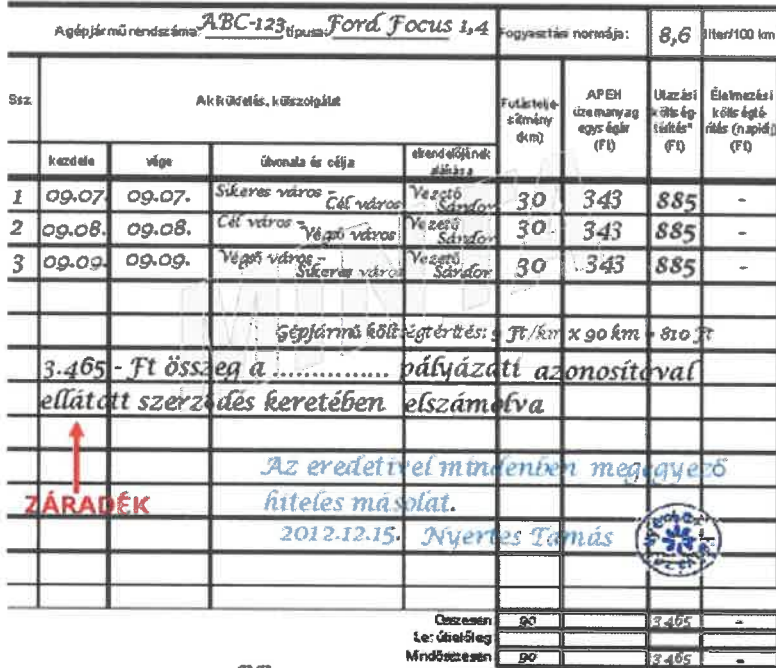 A gépjármű rendszáma: ABC-123 típusa: Ford Focus 1,4 Fogyasztási normája: 8,6 liter/100 km
Ssz. A kiküldetés, külszolgálat Futástelje-sítmény (km) APEH üzemanyag egységár (Ft) Utazási költség-térítés* (Ft) Élelmezési költségté-rítés (napidíj) (Ft)
kezdete vége útvonala és célja elrendelőjének aláírása
1 09.07. 09.07. Sikeres város - Cél város Vezető Sándor 30 343 885 -
2 09.08. 09.08. Cél város - Végső város Vezető Sándor 30 343 885 -
3 09.09. 09.09. Végső város - Sikeres város Vezető Sándor 30 343 885 -
MINTA
Gépjármű költségtérítés: 9 Ft/km x 90 km = 810 Ft
3.465 - Ft összeg a ............... pályázati azonosítóval
ellátott szerződés keretében elszámolva
Az eredetivel mindenben megegyező
ZÁRADÉK hiteles másolat.
2012.12.15. Nyertes Tamás
Összesen 90 3465 -
Le: útielőleg
Mindösszesen 90 3465 -